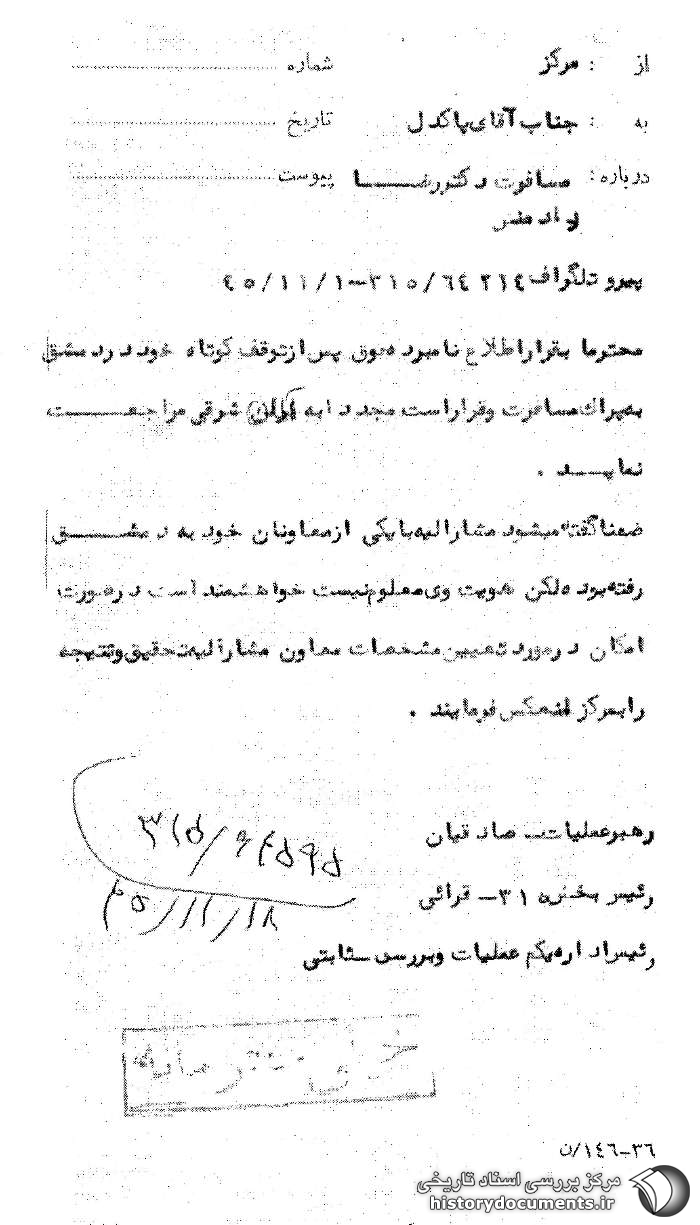 از : مرکز شماره
به : جناب آقای پاکدل تاریخ
درباره : مسافرت دکتر رضا پیوست
رادمنش
پیرو تلگراف ۳۱۵/۶۴۲۱۴-۴۵/۱۱/۱
محترما بقرار اطلاع نامبرده فوق پس از توقف کوتاه خود در دمشق
به پراک مسافرت و قرار است مجددا به آلمان شرقی مراجعت
نماید .
ضمنا گفته میشود مشارالیه با یکی از معاونان خود به دمشق
رفته بوده ولکن هویت وی معلوم نیست خواهشمند است در صورت
امکان در مورد تعیین مشخصات معاون مشارالیه تحقیق و نتیجه
را بمرکز منعکس فرمایند .
رهبر عملیات صادقیان
۳۱۵/
رئیس بخش ۳۱- قرائی
۴۵/۱۱/۱۸
رئیس اداره یکم عملیات و بررسی ثابتی
خیلی محرمانه
۳۶-۱۴۶/ن
مرکز بررسی اسناد تاریخی
historydocuments.ir